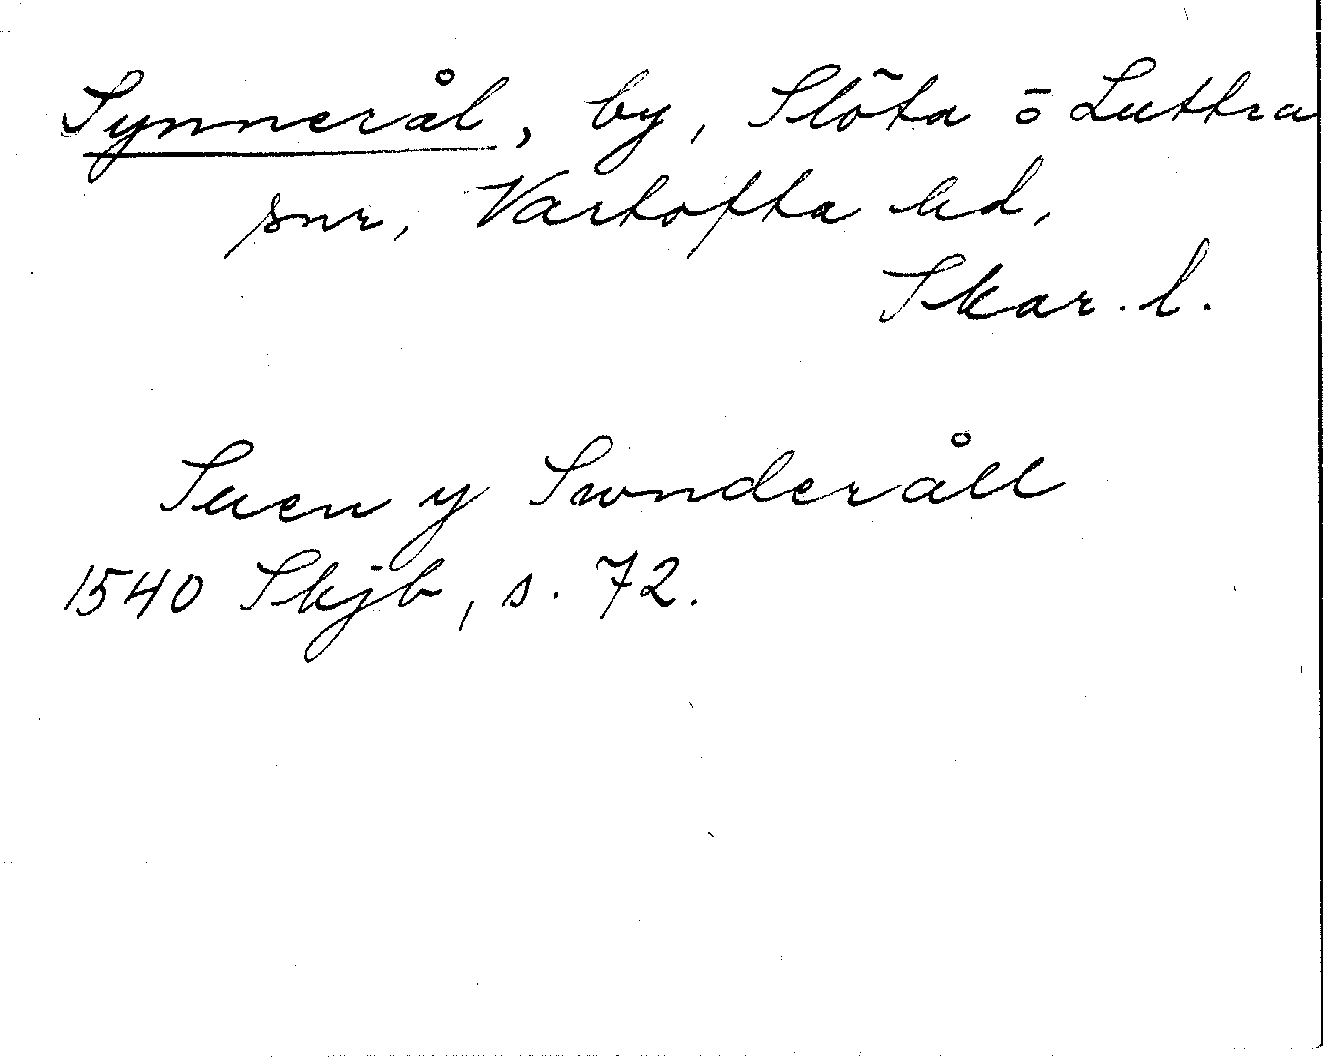 Synnerål, by, Slöta o Luttra
snr, Vartofta hd,
Skar. l.
Suen y Swnderåll
1540 Skjb, s. 72.